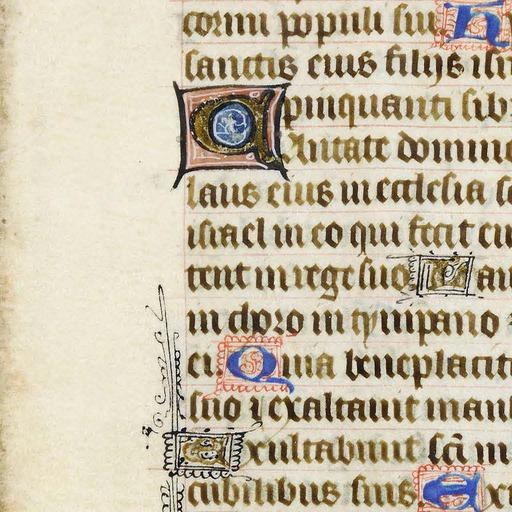 cornu populi sui H
sanctis eius filijs isr
pinquanti sib
CAntate domin
laus eius in ecclesia sc
israel in eo qui fecit eu
tent in rege suo Lau
in choro in tympano
ei Quia beneplacit
suo ⁊ exaltauit man
Exultabunt sci in
cubilibus suis Ex